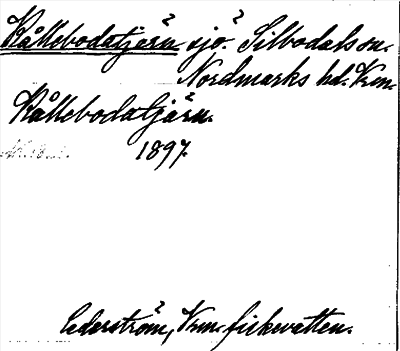 Kållebodatjärn sjö? Silbodals sn.
Nordmarks hd. Vrm.
Kållebodatjärn.
1897.
Cederström, Vrm. fiskevatten.